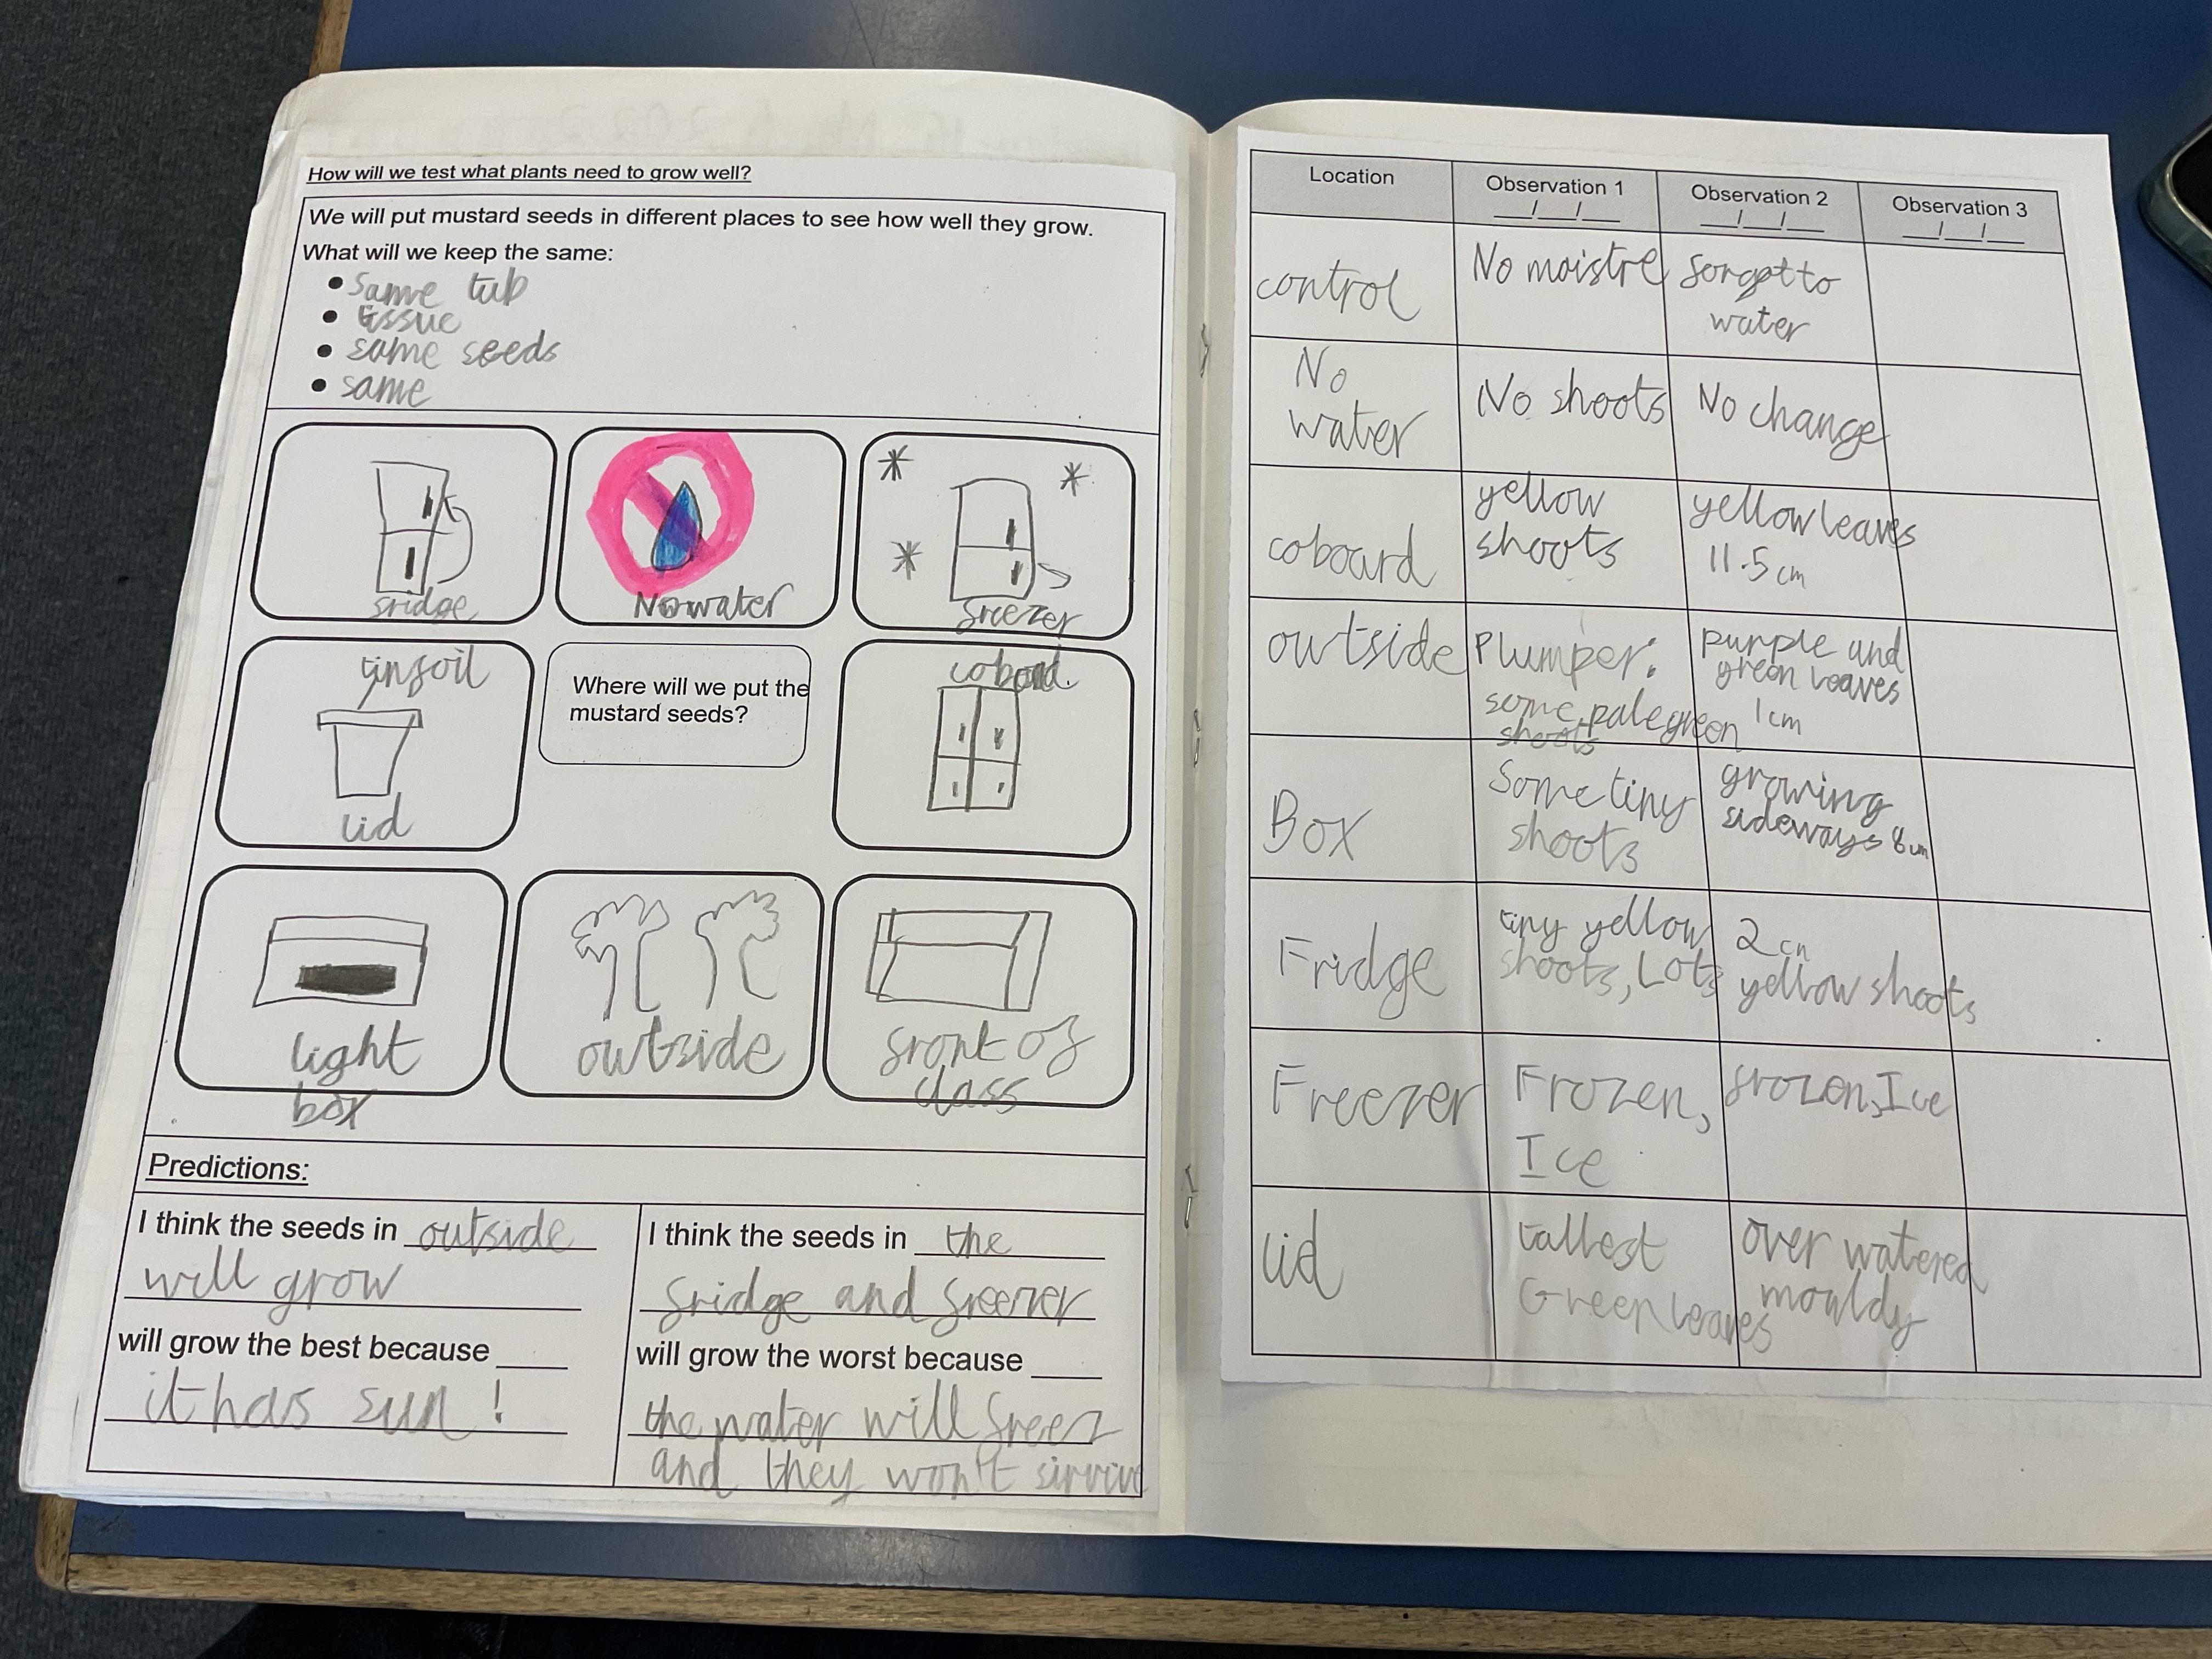 How will we test what plants need to grow well?
We will put mustard seeds in different places to see how well they grow.
What will we keep the same:
• same tub
• tissue
• same seeds
• same
sridge
No water
sreezer
tinsoil
lid
Where will we put the
mustard seeds?
coboad.
light
box
outside
sront os
class
Predictions:
I think the seeds in outside
will grow
will grow the best because ____
it has sun!
I think the seeds in the
sridge and sreezer
will grow the worst because ____
the water will sreez
and they won't sirvive
Location
Observation 1
__/__/__
Observation 2
__/__/__
Observation 3
__/__/__
control
No moistre
sorgot to
water
No
water
No shoots
No change
coboard
yellow
shoots
yellow leaves
11.5 cm
outside
Plumper:
some pale green
shoots
purple and
green leaves
1 cm
Box
Some tiny
shoots
growing
sideways 8 cm
Fridge
tiny yellow
shoots, Lots
2 cm
yellow shoots
Freezer
Frozen,
Ice
srozen, Ice
lid
tallest
Green leaves
over watered
mouldy